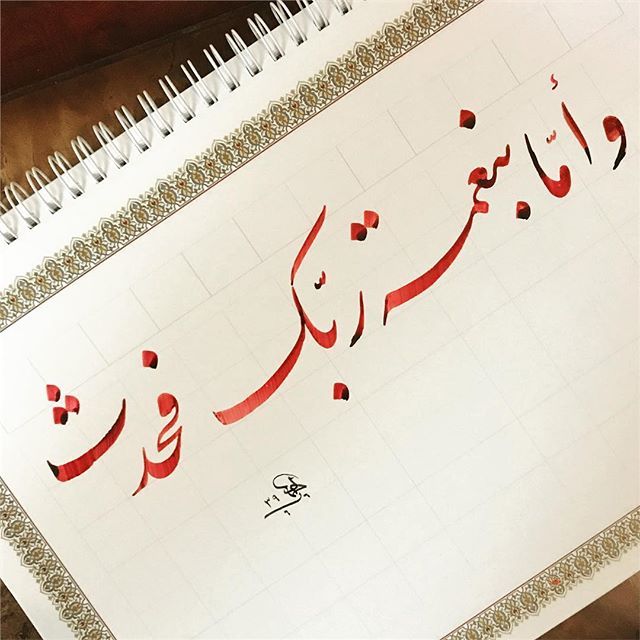 وأمّا بنعمة ربّک فحدث